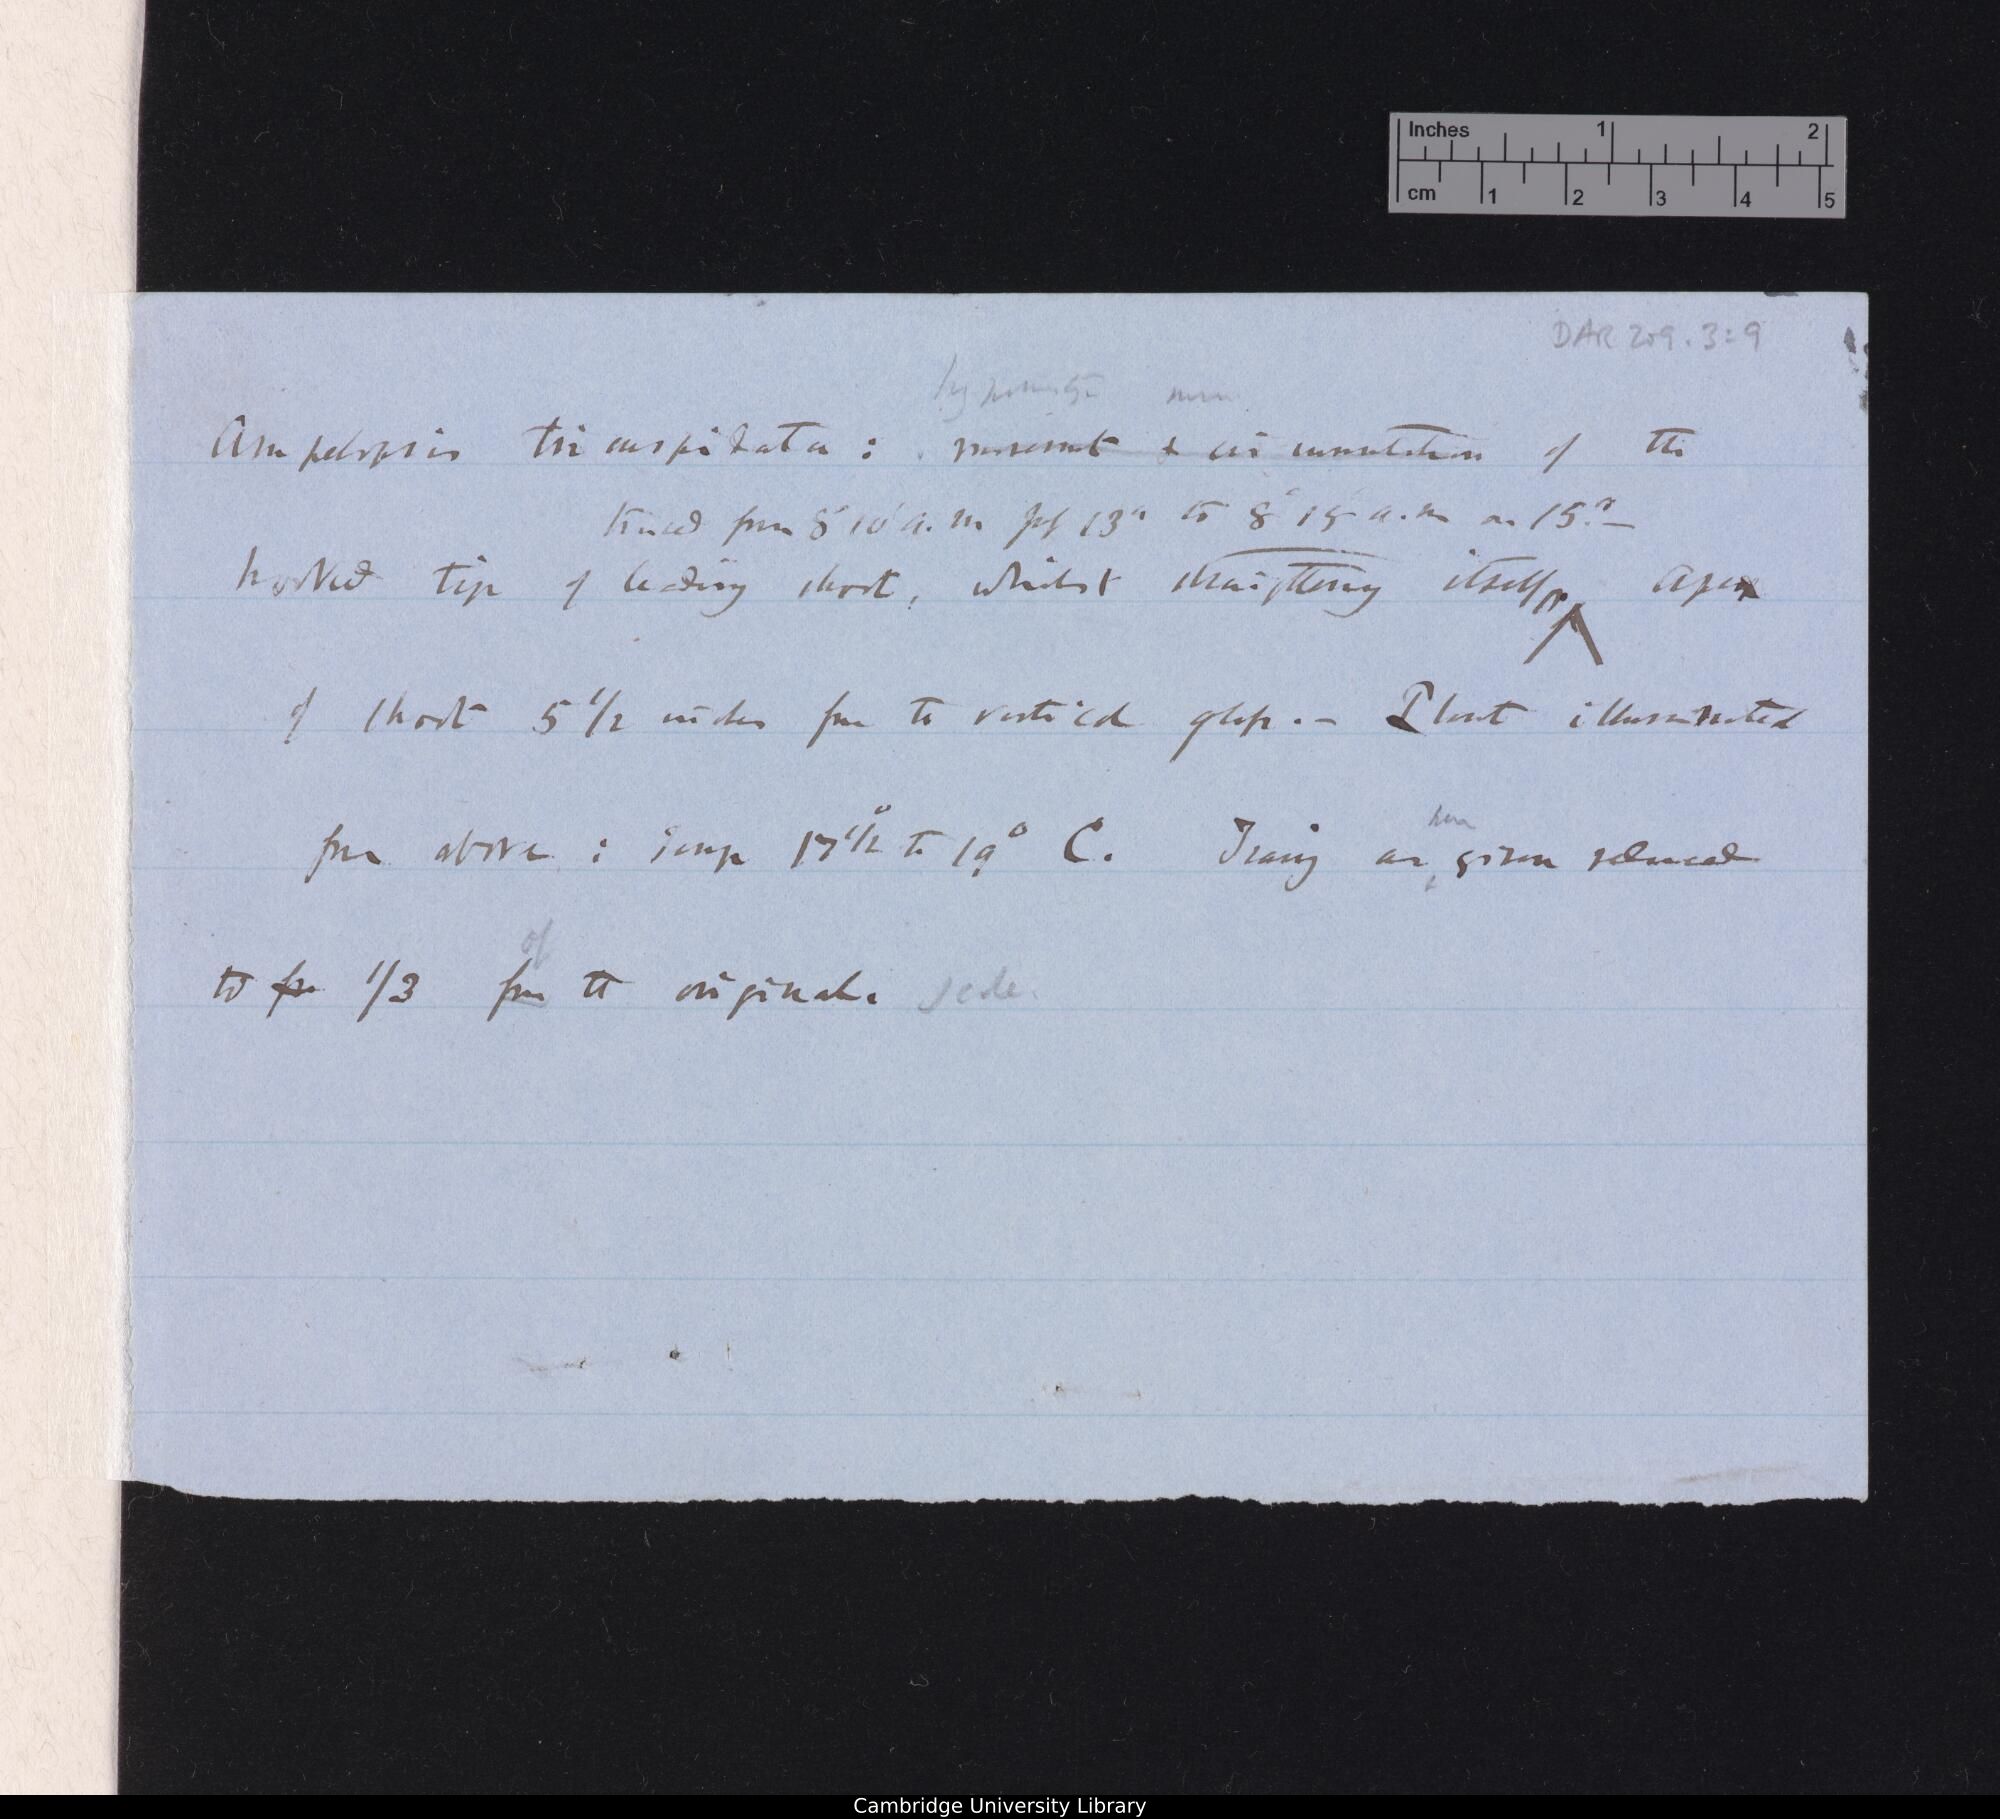 Inches 1 2
cm 1 2 3 4 5
DAR 209.3:9
hyponastic
Ampelopsis tricuspidata: movement & circumnutation of the
traced from 8° 10' a.m July 13th to 8° 15' a.m on 15th
hooked tip of leading shoot, whilst straightening itself, Apex
of shoot 5 1/2 inches from the vertical glass.— Plant illuminated
here
from above: Temp 17 1/2° to 19° C. Tracing as given reduced
of
to from 1/3 from the original. scale.
Cambridge University Library